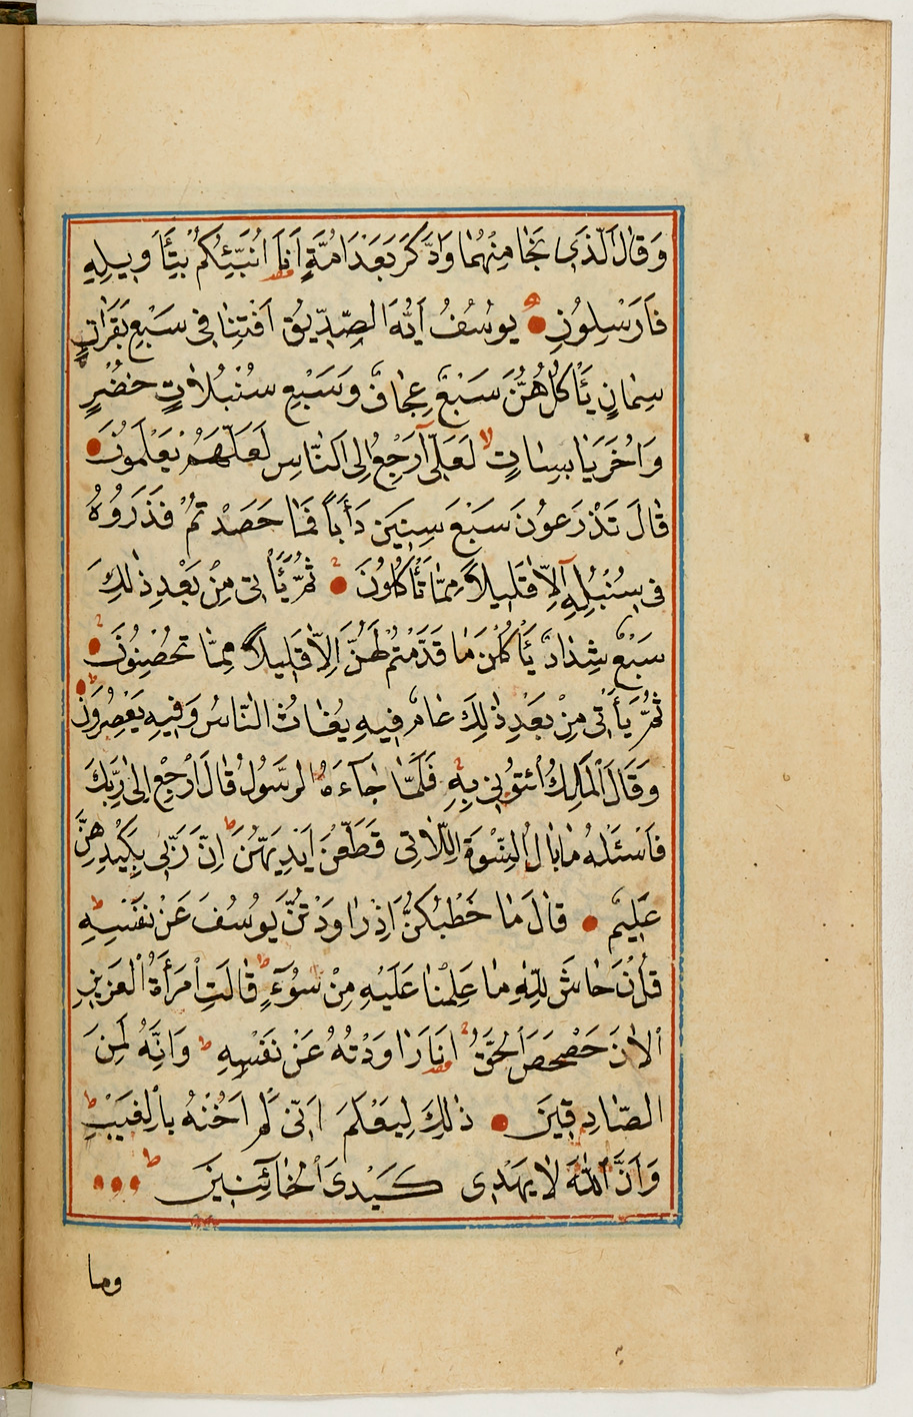 وَقَالَ الَّذِي نَجَا مِنْهُمَا وَادَّكَرَ بَعْدَ اُمَّةٍ اَنَا اُنَبِّئُكُمْ بِتَأْوِيلِهِ
فَاَرْسِلُونِ يُوسُفُ اَيُّهَا الصِّدِّيقُ اَفْتِنَا فِي سَبْعِ بَقَرَاتٍ
سِمَانٍ يَأْكُلُهُنَّ سَبْعٌ عِجَافٌ وَسَبْعِ سُنْبُلَاتٍ خُضْرٍ
وَاُخَرَ يَابِسَاتٍ لَعَلِّي اَرْجِعُ اِلَى النَّاسِ لَعَلَّهُمْ يَعْلَمُونَ
قَالَ تَزْرَعُونَ سَبْعَ سِنِينَ دَأَبًا فَمَا حَصَدْتُمْ فَذَرُوهُ
فِي سُنْبُلِهِ اِلَّا قَلِيلًا مِمَّا تَأْكُلُونَ ثُمَّ يَأْتِي مِنْ بَعْدِ ذٰلِكَ
سَبْعٌ شِدَادٌ يَأْكُلْنَ مَا قَدَّمْتُمْ لَهُنَّ اِلَّا قَلِيلًا مِمَّا تُحْصِنُونَ
ثُمَّ يَأْتِي مِنْ بَعْدِ ذٰلِكَ عَامٌ فِيهِ يُغَاثُ النَّاسُ وَفِيهِ يَعْصِرُونَ
وَقَالَ الْمَلِكُ ائْتُونِي بِهِ فَلَمَّا جَآءَهُ الرَّسُولُ قَالَ ارْجِعْ اِلَى رَبِّكَ
فَاسْئَلْهُ مَا بَالُ النِّسْوَةِ اللَّاتِي قَطَّعْنَ اَيْدِيَهُنَّ اِنَّ رَبِّي بِكَيْدِهِنَّ
عَلِيمٌ قَالَ مَا خَطْبُكُنَّ اِذْ رَاوَدْتُنَّ يُوسُفَ عَنْ نَفْسِهِ
قُلْنَ حَاشَ لِلّٰهِ مَا عَلِمْنَا عَلَيْهِ مِنْ سُوٓءٍ قَالَتِ امْرَأَةُ الْعَزِيزِ
الْاٰنَ حَصْحَصَ الْحَقُّ اَنَا رَاوَدْتُهُ عَنْ نَفْسِهِ وَاِنَّهُ لَمِنَ
الصَّادِقِينَ ذٰلِكَ لِيَعْلَمَ اَنِّي لَمْ اَخُنْهُ بِالْغَيْبِ
وَاَنَّ اللّٰهَ لَا يَهْدِي كَيْدَ الْخَآئِنِينَ
وما